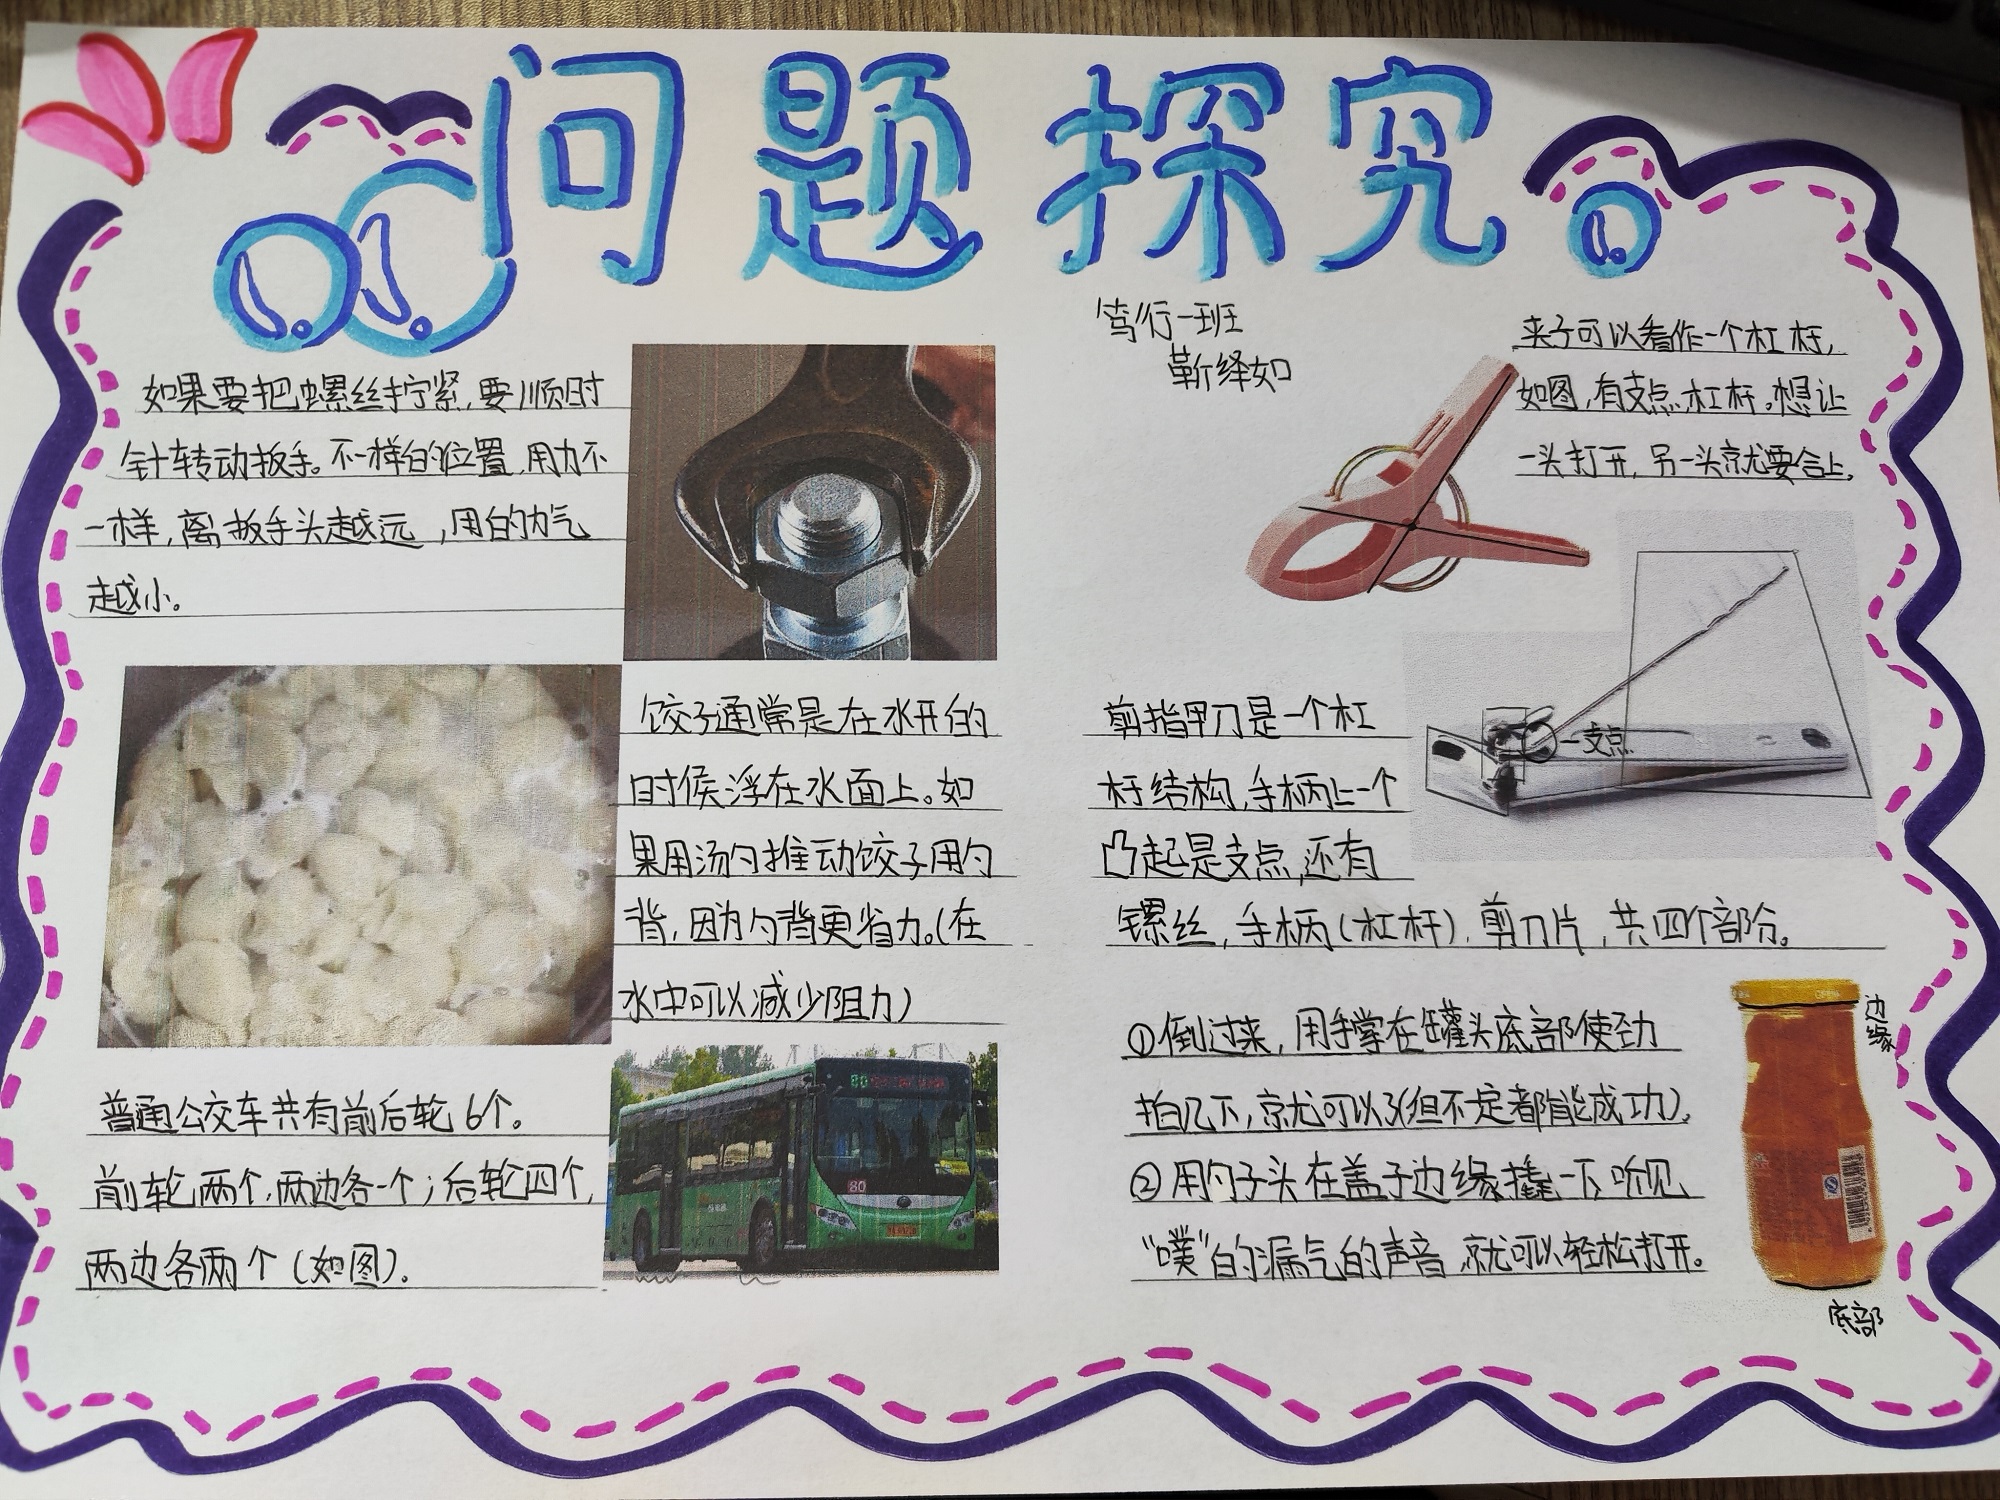 问题探究
笃行一班
靳绎如
如果要把螺丝拧紧,要顺时
针转动扳手。不一样的位置,用力不
一样,离扳手头越远,用的力气
越小。
饺子通常是在水开的
时候浮在水面上。如
果用汤勺推动饺子用勺
背,因为勺背更省力。(在
水中可以减少阻力)
普通公交车共有前后轮6个。
前轮两个,两边各一个;后轮四个,
两边各两个(如图)。
80
夹子可以看作一个杠杆,
如图,有支点、杠杆。想让
一头打开,另一头就要合上。
支点
剪指甲刀是一个杠
杆结构,手柄上一个
凸起是支点,还有
镙丝,手柄(杠杆),剪刀片,共四个部分。
①倒过来,用手掌在罐头底部使劲
拍几下,就可以了(但不一定都能成功)。
②用勺子头在盖子边缘撬一下,听见
“噗”的漏气的声音,就可以轻松打开。
边缘
底部